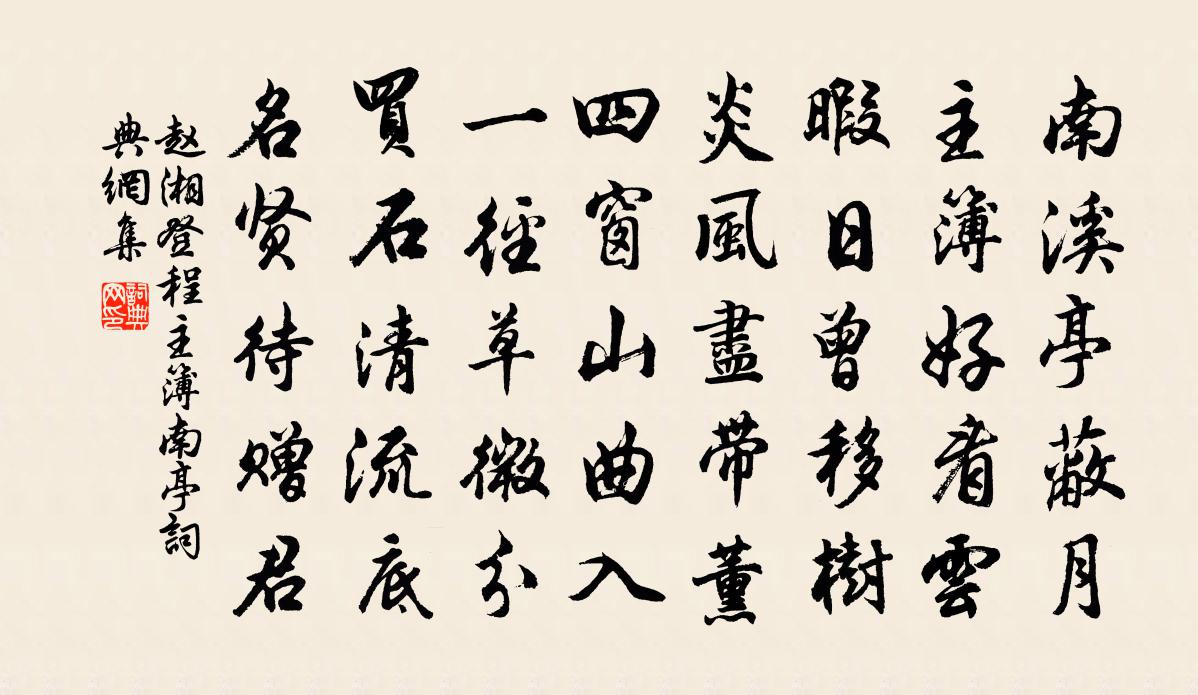 南溪亭蔽月
主簿好看雲
暇日曾移樹
炎風盡帶薰
四窗山曲入
一徑草微分
買石清流底
名贤待赠君
赵湘登程主簿南亭詞
典網集
詞典
网印